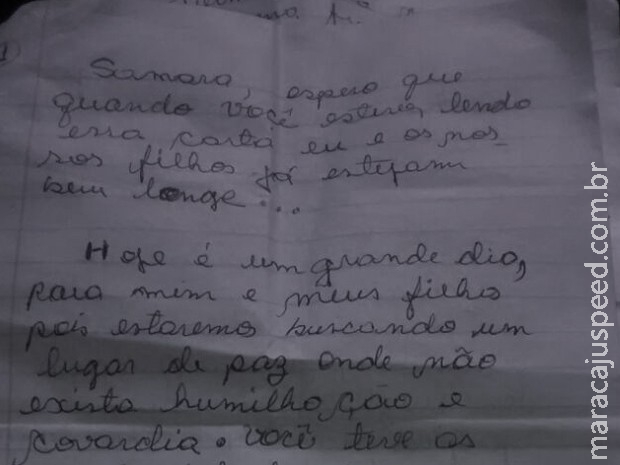 1
Samara, espero que
quando você estiver lendo
essa carta eu e os nos_
sos filhos já estejam
bem longe...
Hoje é um grande dia,
para mim e meus filho
pois estaremos buscando um
lugar de paz onde não
exista humilhação e
covardia. Você teve os
maracajuspeed.com.br